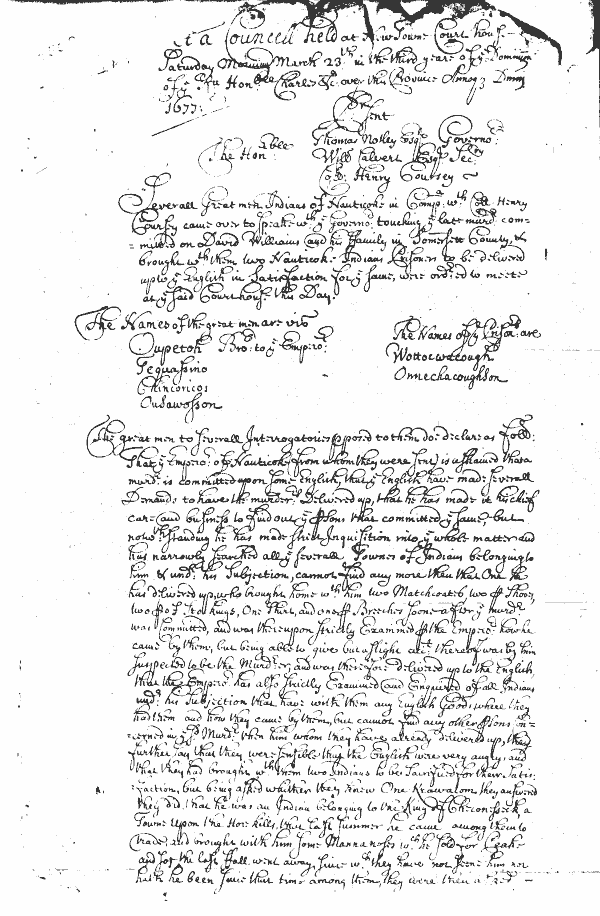 At a Councell held at New Towne Court house
Saturday Morning March 23th in the third yeare of ye Dominion
of ye Rt Honble Charles &c over this Province Annoq Dmni
1677:
Present
The Honble
Thomas Notley Esqr Governor:
Will Calvert Esqr Secry
Coll: Henry Coursey
Severall Great men Indians of Nanticoke in Compa: wth Coll Henry
Coursey came over to speake wth ye Governor touching ye late murdr com=
=mitted on David Williams and his Family in Somersett County, &
brought wth them two Nanticoke Indians Prisoners to be delivered
up to ye English in Satisfaction for ye same, were ordred to meete
at ye said Court house this Day.
The Names of the great men are vizt
Oupetoh Bro: to ye Emperor:
Tequassino
Chincoricos
Ousawosson
The Names of ye Prisonrs are
Wottocwteough
Onnechacoughson
The great men to severall Interrogatories pposed to them doe declare as Foll:
That ye Emperor of Nanticoke from whom they were sent is ashamed that a
murdr is committed upon some English, that ye English have made severall
Demands to have the murderrs Delivered up, that he has made it his chief
care and business to find out ye psons that committed ye same, but
notwthstanding he has made strict Inquisition into ye whole matter and
has narrowly searched all ye severall Townes of Indians belonging to
him & undr his Subjection, cannot find any more then that One he
has delivered up, who brought home wth him two Matchcoates, two pr Shoes,
two prs of Stockings, One Shirt, and one pr Breeches soone after ye murdr
was committed, and was thereupon strictly Examined p the Emperor how he
came by them, but being able to give but a slight acct thereof was by him
suspected to be the Murdrer, and was therefore delivered up to the English
that the Emperor has also strictly Examined and Enquired of all Indians
undr his Subjection that have with them any English Goods where they
had them and how they came by them, but cannot find any other psons con=
=cerned in ye sd Murdr then him whom they have already delivered up, they
further say that they were sensible that the English were very angry, and
that they had brought wth them two Indians to be Sacrificed for their Satis=
=faction, but being asked whether they knew One Krawalom, they answered
they did, that he was an Indian belonging to the King of Checonesseck a
Towne upon the Hore kills, that last summer he came among them to
trade, and brought with him some Mannanoses wch he sold for Peake
and for the last Fall went away, since wch they have not seene him nor
hath he been since that time among them, they were then